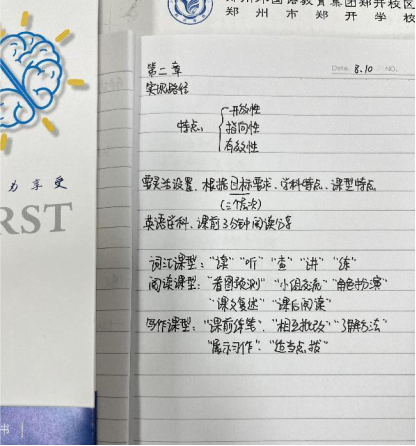 郑州市郑开学校
Date. 8.10 NO.
第二章
实现路径
特点: 开放性
指向性
有效性
为享受
RST
需灵活设置、根据目标要求、学科特点、课型特点
(三个层次)
英语学科、课前3分钟阅读分享
词汇课型:“读”“听”“查”“讲”“练”
阅读课型:“看图预测”“小组交流”“角色扮演”
“课文复述”“课后阅读”
写作课型:“课前练笔”、“相互批改”“了解方法”
“展示习作”、“适当点拨”
书